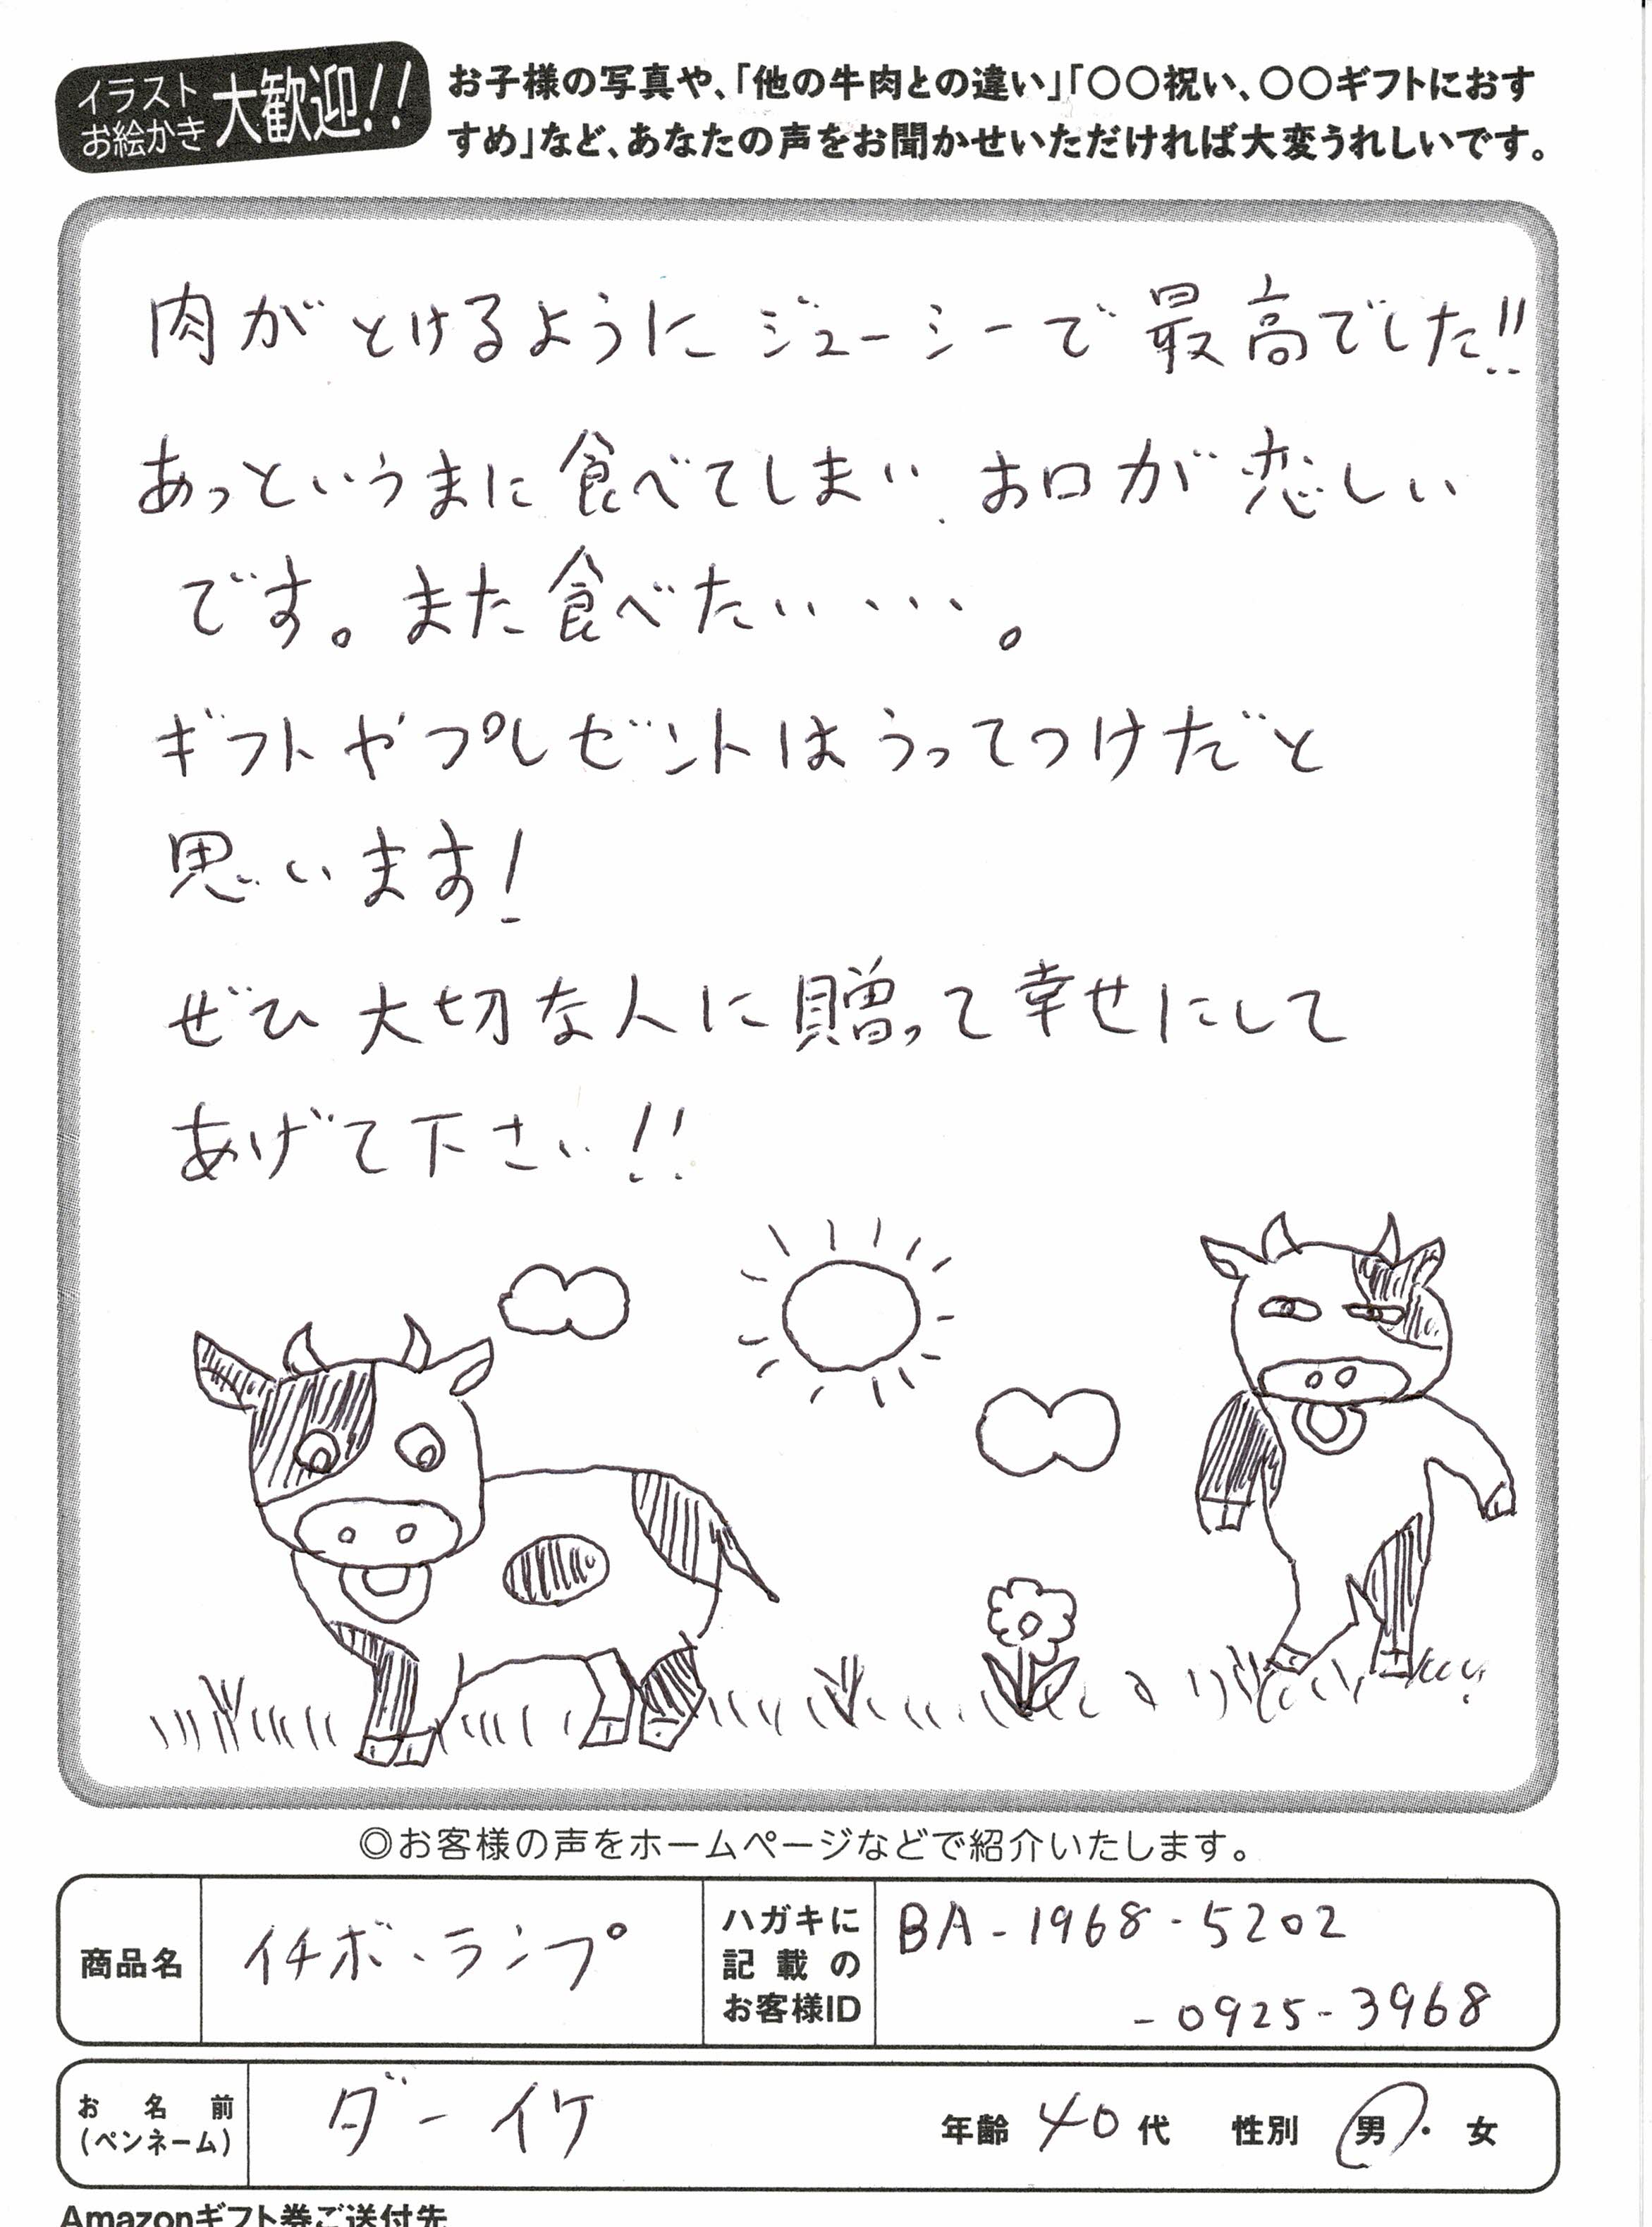 イラスト
お絵かき
大歓迎!!
お子様の写真や、「他の牛肉との違い」「〇〇祝い、〇〇ギフトにおす
すめ」など、あなたの声をお聞かせいただければ大変うれしいです。
肉がとけるようにジューシーで最高でした!!
あっというまに食べてしまい、お口が恋しい
です。また食べたい・・・。
ギフトやプレゼントはうってつけだと
思います!
ぜひ大切な人に贈って幸せにして
あげて下さい!!
◎お客様の声をホームページなどで紹介いたします。
商品名
イチボ・ランプ
ハガキに
記載の
お客様ID
BA-1968-5202
-0925-3968
お名前
(ペンネーム)
ダーイケ
年齢 40代 性別 男・女
Amazonギフト券ご送付先